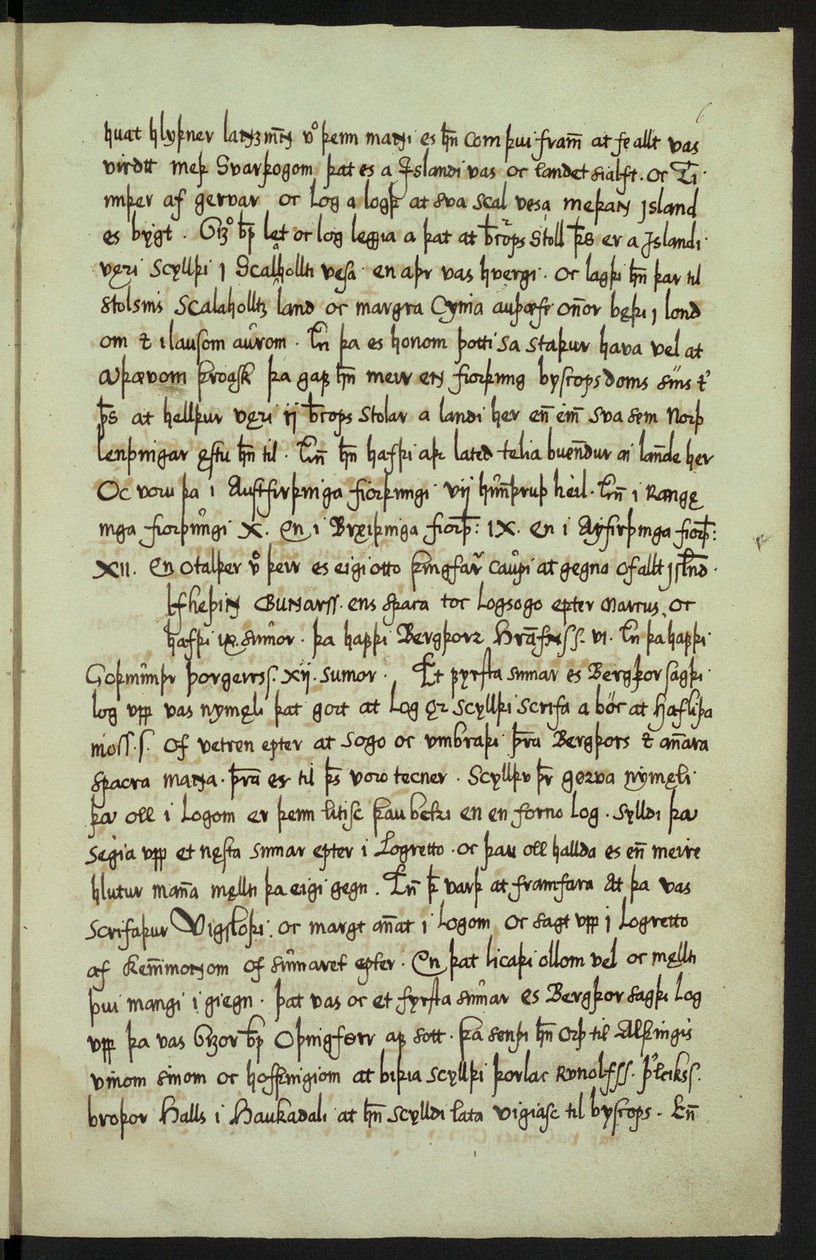 6
huat hlyþner lanzmn̄ vͦ þeim manni es hn̄ com þui fram̄ at fe allt vas
virdtt meþ Svarþogom þat es a Islandi vas oc landet sialft. oc Ti
mþer af gervar oc Log a logþ at sva scal vesa meþan Island
es bygt. Gizͦ bp̄ let oc log leggia a þat at b̄rcops Stoll þs̄ er a Islandi
vęri Scyllþi i Scalahollti vesa. en aþr vas hvergi. oc lagþi hn̄ þar til
Stolsins Scalaholltz land oc margra Cynia auþœfr on̄or bęþi i lond
om ⁊ i lausom aurom. En̄ þa es honom þotti sa staþur hava vel at
aþævom þroask þa gaf hn̄ meir en fiorþung byscops doms sins t
þs̄ at hellþur vęri ij b̄rcops Stolar a landi her en̄ ein̄ sva sem Norþ
lenþingar ęstu hn̄ til. En̄ hn̄ hafþi aþr lated telia buen̄dur ai lan̄de her
Oc voru þa i Austfirþinga fiorþungi vij hun̄þruþ heil. En̄ i Rangę
inga fiorþungi X. En i Bręiþinga fiorþ̄: IX. en i Ayfirþinga fiorþ̄:
XII. En otalþer vͦ þeir es eigi otto þingfarͬ caupi at gegna of allt Islnd.
Ulfheþin Gunarss. ens spaca toc Logsogo epter Marcus. oc
hafþi ix sumor. þa hafþi Bergþorr Hrafnss. vi. En þa hafþi
Goþmunþr þorgeirss. xij. sumor. Et fyrsta sumar es Bergþor sagþi
log upp vas nymęli þat gort at Log ǫr scyllþi scrifa a bóc at Hafliþa
moss. s. of vetren epter at sogo oc umbraþi þra Bergþors ⁊ an̄ara
spacra manna. þra es til þs̄ voro tecner. Scyllþu þr gørva nymęli
þa oll i Logom er þeim litisc þau betri en en forno log. Sylldi þa
segia upp et nęsta sumar epter i Logretto. oc þau oll hallda es en̄ meire
hlutur man̄a męllti þa eigi gegn. En̄ þ̄ varþ at framfara At þa vas
Scrifaþur Vigsloþi. oc margt an̄at i Logom oc sagt upp i Logretto
af Ken̄imonnom of sumaret epter. En þat licaþi ollom vel oc męllti
þui mangi i giegn. þat vas oc et fyrsta sumar es Bergþor sagþi Log
upp þa vas Gizor bp̄ Oþingførr af sott. þa senþi hn̄ orþ til Alþingis
vinom sinom oc hofþingiom at biþia scyllþi þorlac Runolfss. þ'leikss.
broþor Halls i Haukadali at hn̄ scylldi lata vigiasc til byscops. En̄